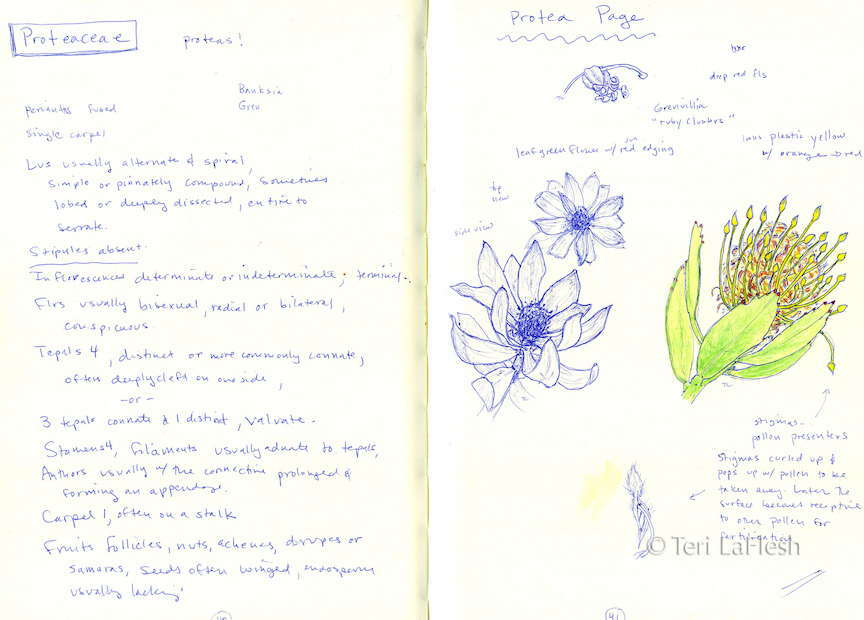 Proteaceae
proteas!
Banksia
Grev
perianths fused
single carpel
Lvs usually alternate & spiral,
simple or pinnately compound, sometimes
lobed or deeply dissected, entire to
serrate.
Stipules absent.
Inflorescences determinate or indeterminate; terminal..
Flrs usually bisexual, radial or bilateral,
conspicuous.
Tepals 4, distinct or more commonly connate,
often deeply cleft on one side,
-or-
3 tepals connate & 1 distinct, valvate.
Stamens 4, filaments usually adnate to tepals,
Anthers usually w/ the connective prolonged &
forming an appendage.
Carpel 1, often on a stalk
Fruits follicles, nuts, achenes, drupes or
samaras, seeds often winged, endosperm
usually lacking.
Protea Page
deep red fls
TL
Grenvillia
"ruby clusters"
plastic yellow
w/ orange → red
leaf green flower w/ red edging
top
view
side view
TL
TL
Stigmas -
pollen presenters
Stigmas curled up &
pops up w/ pollen to be
taken away. Later the
surface becomes receptive
to other pollen for
fertilization
© Teri LaFlesh
41